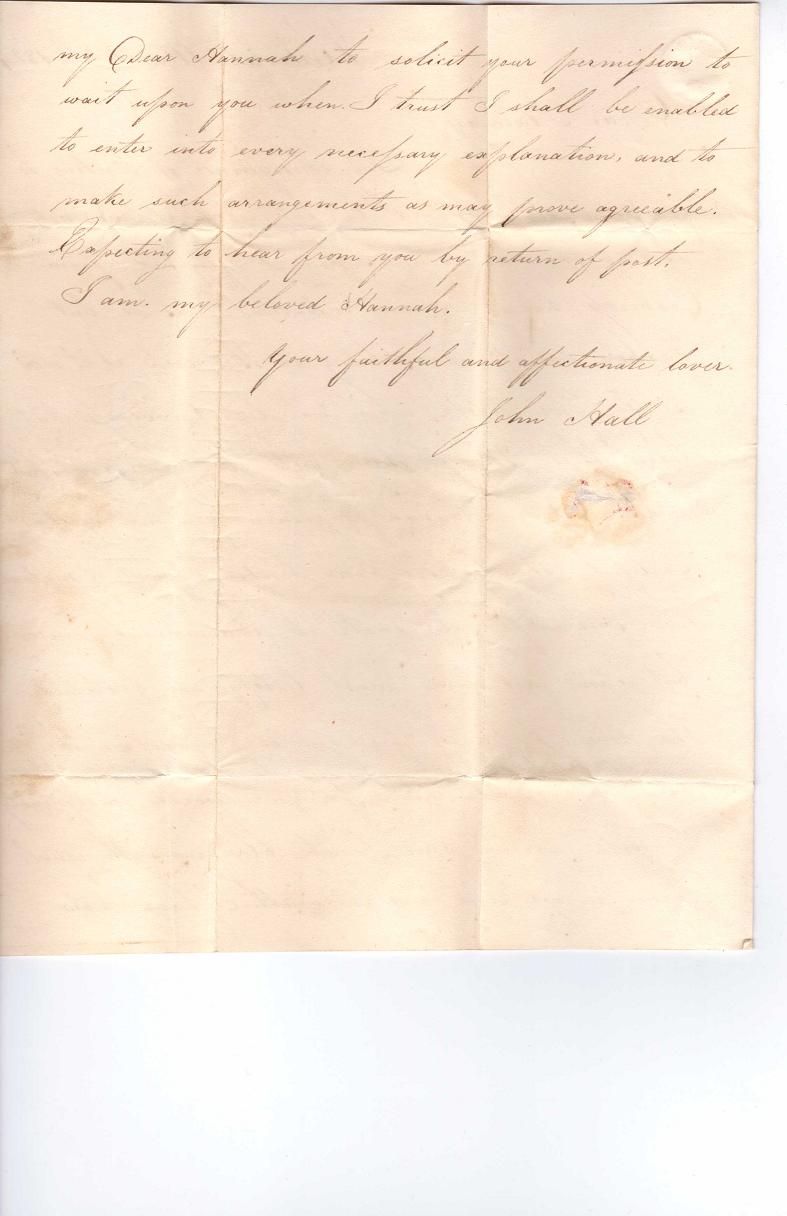 my Dear Hannah to solicit your permiſsion to
wait upon you when. I trust I shall be enabled
to enter into every neceſsary explanation, and to
make such arrangements as may prove agreeable.
Expecting to hear from you by return of post.
I am. my beloved Hannah.
Your faithful and affectionate lover.
John Hall